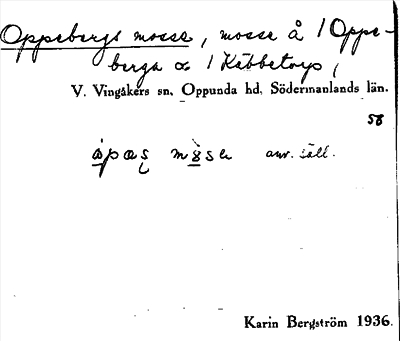 Oppebergs mosse, mosse å 1 Oppe-
berga o 1 Käbbetorp,
V. Vingåkers sn, Oppunda hd, Södermanlands län.
58
anv. säll.
Karin Bergström 1936.